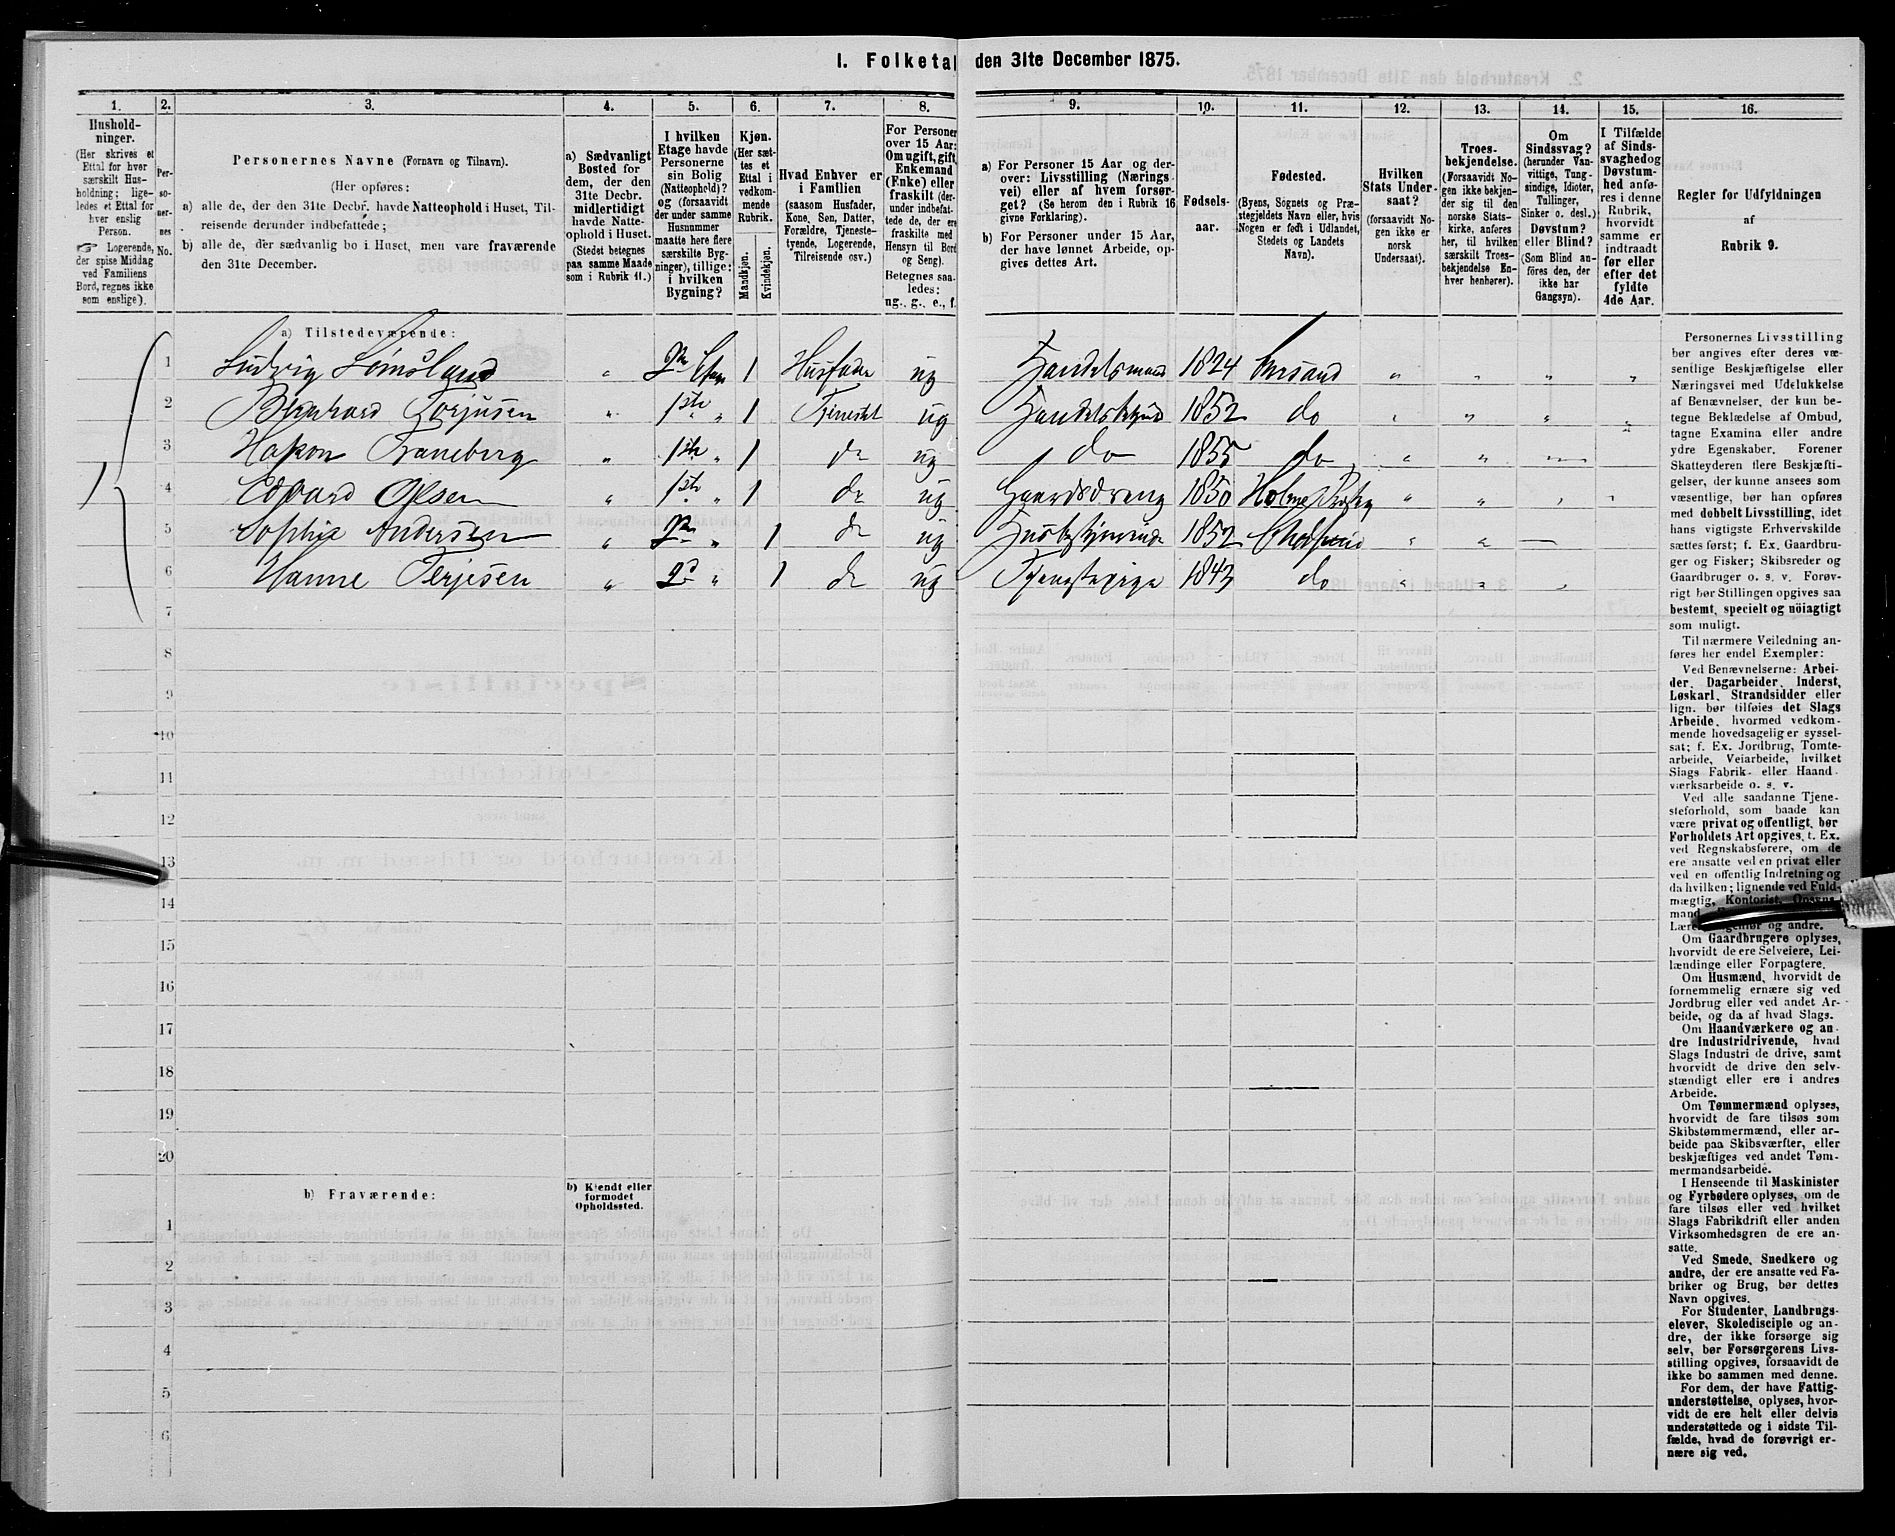 I. Folketal den 31te December 1875.
1. 2. 3. 4. 5. 6. 7. 8. 9. 10. 11. 12. 13. 14. 15. 16.
Hushold-
ninger.
(Her skrives et
Ettal for hver
særskilt Hus-
holdning; lige-
ledes et Ettal for
hver enslig
Person.
☞ Logerende,
der spise Middag
ved Familiens
Bord, regnes ikke
som enslige).
Per-
so-
ner-
nes
No.
Personernes Navne (Fornavn og Tilnavn).
(Her opføres:
a) alle de, der den 31te Decbr. havde Natteophold i Huset, Til-
reisende derunder indbefattede;
b) alle de, der sædvanlig bo i Huset, men vare fraværende
den 31te December.
a) Sædvanligt
Bosted for
dem, der den
31te Decbr.
midlertidigt
havde Natte-
ophold i Huset.
(Stedet betegnes
paa samme Maade
som i Rubrik 11.)
I hvilken
Etage havde
Personerne
sin Bolig
(Natteophold)?
og (forsaavidt
der under samme
Husnummer
maatte here flere
særskilte Byg-
ninger), tillige:
i hvilken
Bygning?
Kjøn.
(Her sæt-
tes et
Ettal i
vedkom-
mende
Rubrik.
Mandkjøn.
Kvindekjøn.
Hvad Enhver er
i Familien
(saasom Husfader,
Kone, Søn, Datter,
Forældre, Tjeneste-
tyende, Logerende,
Tilreisende osv.)
For Personer
over 15 Aar:
Om ugift, gift,
Enkemand
(Enke) eller
fraskilt (der-
under indbefat-
tede de, der ere
fraskilte med
Hensyn til Bord
og Seng).
Betegnes saa-
ledes:
ug., g., e., f.
a) For Personer 15 Aar og der-
over: Livsstilling (Nærings-
vei) eller af hvem forsør-
get? (Se herom den i Rubrik 16
givne Forklaring).
b) For Personer under 15 Aar,
der have lønnet Arbeide, op-
gives dettes Art.
Fødsels-
aar.
Fødested.
(Byens, Sognets og Præ-
stegjeldets Navn eller, hvis
Nogen er født i Udlandet,
Stedets og Landets
Navn).
Hvilken
Stats Under-
saat?
(forsaavidt No-
gen ikke er
norsk
Undersaat).
Troes-
bekjendelse.
(Forsaavidt No-
gen ikke bekjen-
der sig til den
norske Stats-
kirke, anføres
her, til hvilken
særskilt Troes-
bekjendelse En-
hver henhører).
Om
Sindssvag?
(herunder Van-
vittige, Tung-
sindige, Idioter,
Tullinger,
Sinker o. desl.)
Døvstum?
eller Blind?
(Som Blind an-
føres den, der
ikke har
Gangsyn).
I Tilfælde
af Sinds-
svaghed og
Døvstum-
hed anfø-
res i denne
Rubrik,
hvorvidt
samme er
indtraadt
før eller
efter det
fyldte
4de Aar.
Regler for Udfyldningen
af
Rubrik 9.
a) Tilstedeværende:
1 Ludvig Lømsland " 2den Etage 1 Husfader ug Handelsmand 1824 Chrsand " " " "
2 Bernhard Torjusen " 1ste " 1 Tjenestet ug 1852 do " " "
3 Hakon Traneberg " 1ste " 1 do ug do 1855 do " " "
1 4 Edvard Olsen " 1ste " 1 do ug Gaardsdreng 1850 " " "
5 Sophie Andersen " 2den " 1 do ug Husbestyrerinde 1852 " " —
6 Hanne Terjesen " 2d " 1 do ug Tjenestepige 1843 do " " "
7
8
9
10
11
12
13
14
15
16
17
18
19
20
b) Fraværende:
b) Kjendt eller
formodet
Opholdssted.
1
2
3
4
5
6
Personernes Livsstilling
bør angives efter deres væ-
sentlige Beskjæftigelse eller
Næringsvei med Udelukkelse
af Benævnelser, der kun be-
tegne Beklædelse af Ombud,
tagne Examina eller andre
ydre Egenskaber. Forener
Skatteyderen flere Beskjæfti-
gelser, der kunne ansees som
væsentlige, bør han opføres
med dobbelt Livsstilling, idet
hans vigtigste Erhvervskilde
sættes først; f. Ex. Gaardbru-
ger og Fisker; Skibsreder og
Gaardbruger o. s. v. Forøv-
rigt bør Stillingen opgives saa
bestemt, specielt og nöiagtigt
som muligt.
Til nærmere Veiledning an-
føres her endel Exempler:
Ved Benævnelserne: Arbei-
der, Dagarbeider, Inderst,
Løskarl, Strandsidder eller
lign. bør tilføies det Slags
Arbeide, hvormed vedkom-
mende hovedsagelig er syssel-
sat; f. Ex. Jordbrug, Tomte-
arbeide, Veiarbeide, hvilket
Slags Fabrik- eller Haand-
værksarbeide o. s. v.
Ved alle saadanne Tjene-
steforhold, som baade kan
være privat og offentligt, bør
Forholdets Art opgives, t. Ex.
ved Regnskabsførere, om de
ere ansatte ved en privat eller
ved en offentlig Indretning og
da hvilken; lignende ved Fuld-
mægtig, Kontorist, Opsyns-
mand,
og andre.
Om Gaardbrugere oplyses,
hvorvidt de ere Selveiere, Lei-
lændinge eller Forpagtere.
Om Husmænd, hvorvidt de
fornemmelig ernære sig ved
Jordbrug eller ved andet Ar-
beide, og da af hvad Slags.
Om Haandværkere og an-
dre Industridrivende, hvad
Slags Industri de drive, samt
hvorvidt de drive den selv-
stændigt eller ere i andres
Arbeide.
Om Tømmermænd oplyses,
hvorvidt de fare tilsøs som
Skibstømmermænd, eller ar-
beide paa Skibsværfter, eller
beskjæftiges ved andet Tøm-
mermandsarbeide.
I Henseende til Maskinister
og Fyrbødere oplyses, om de
fare tilsøs eller ved hvilket
Slags Fabrikdrift eller anden
Virksomhedsgren de ere an-
satte.
Ved Smede, Snedkere og
andre, der ere ansatte ved Fa-
briker og Brug, bør dettes
Navn opgives.
For Studenter, Landbrugs-
elever, Skoledisciple og an-
dre, der ikke forsørge sig
selv, bør Forsørgerens Livs-
stilling opgives, forsaavidt de
ikke bo sammen med denne.
For dem, der have Fattig-
understøttelse, oplyses, hvor-
vidt de ere helt eller delvis
understøttede og i sidste Til-
fælde, hvad de forøvrigt er-
nære sig ved.